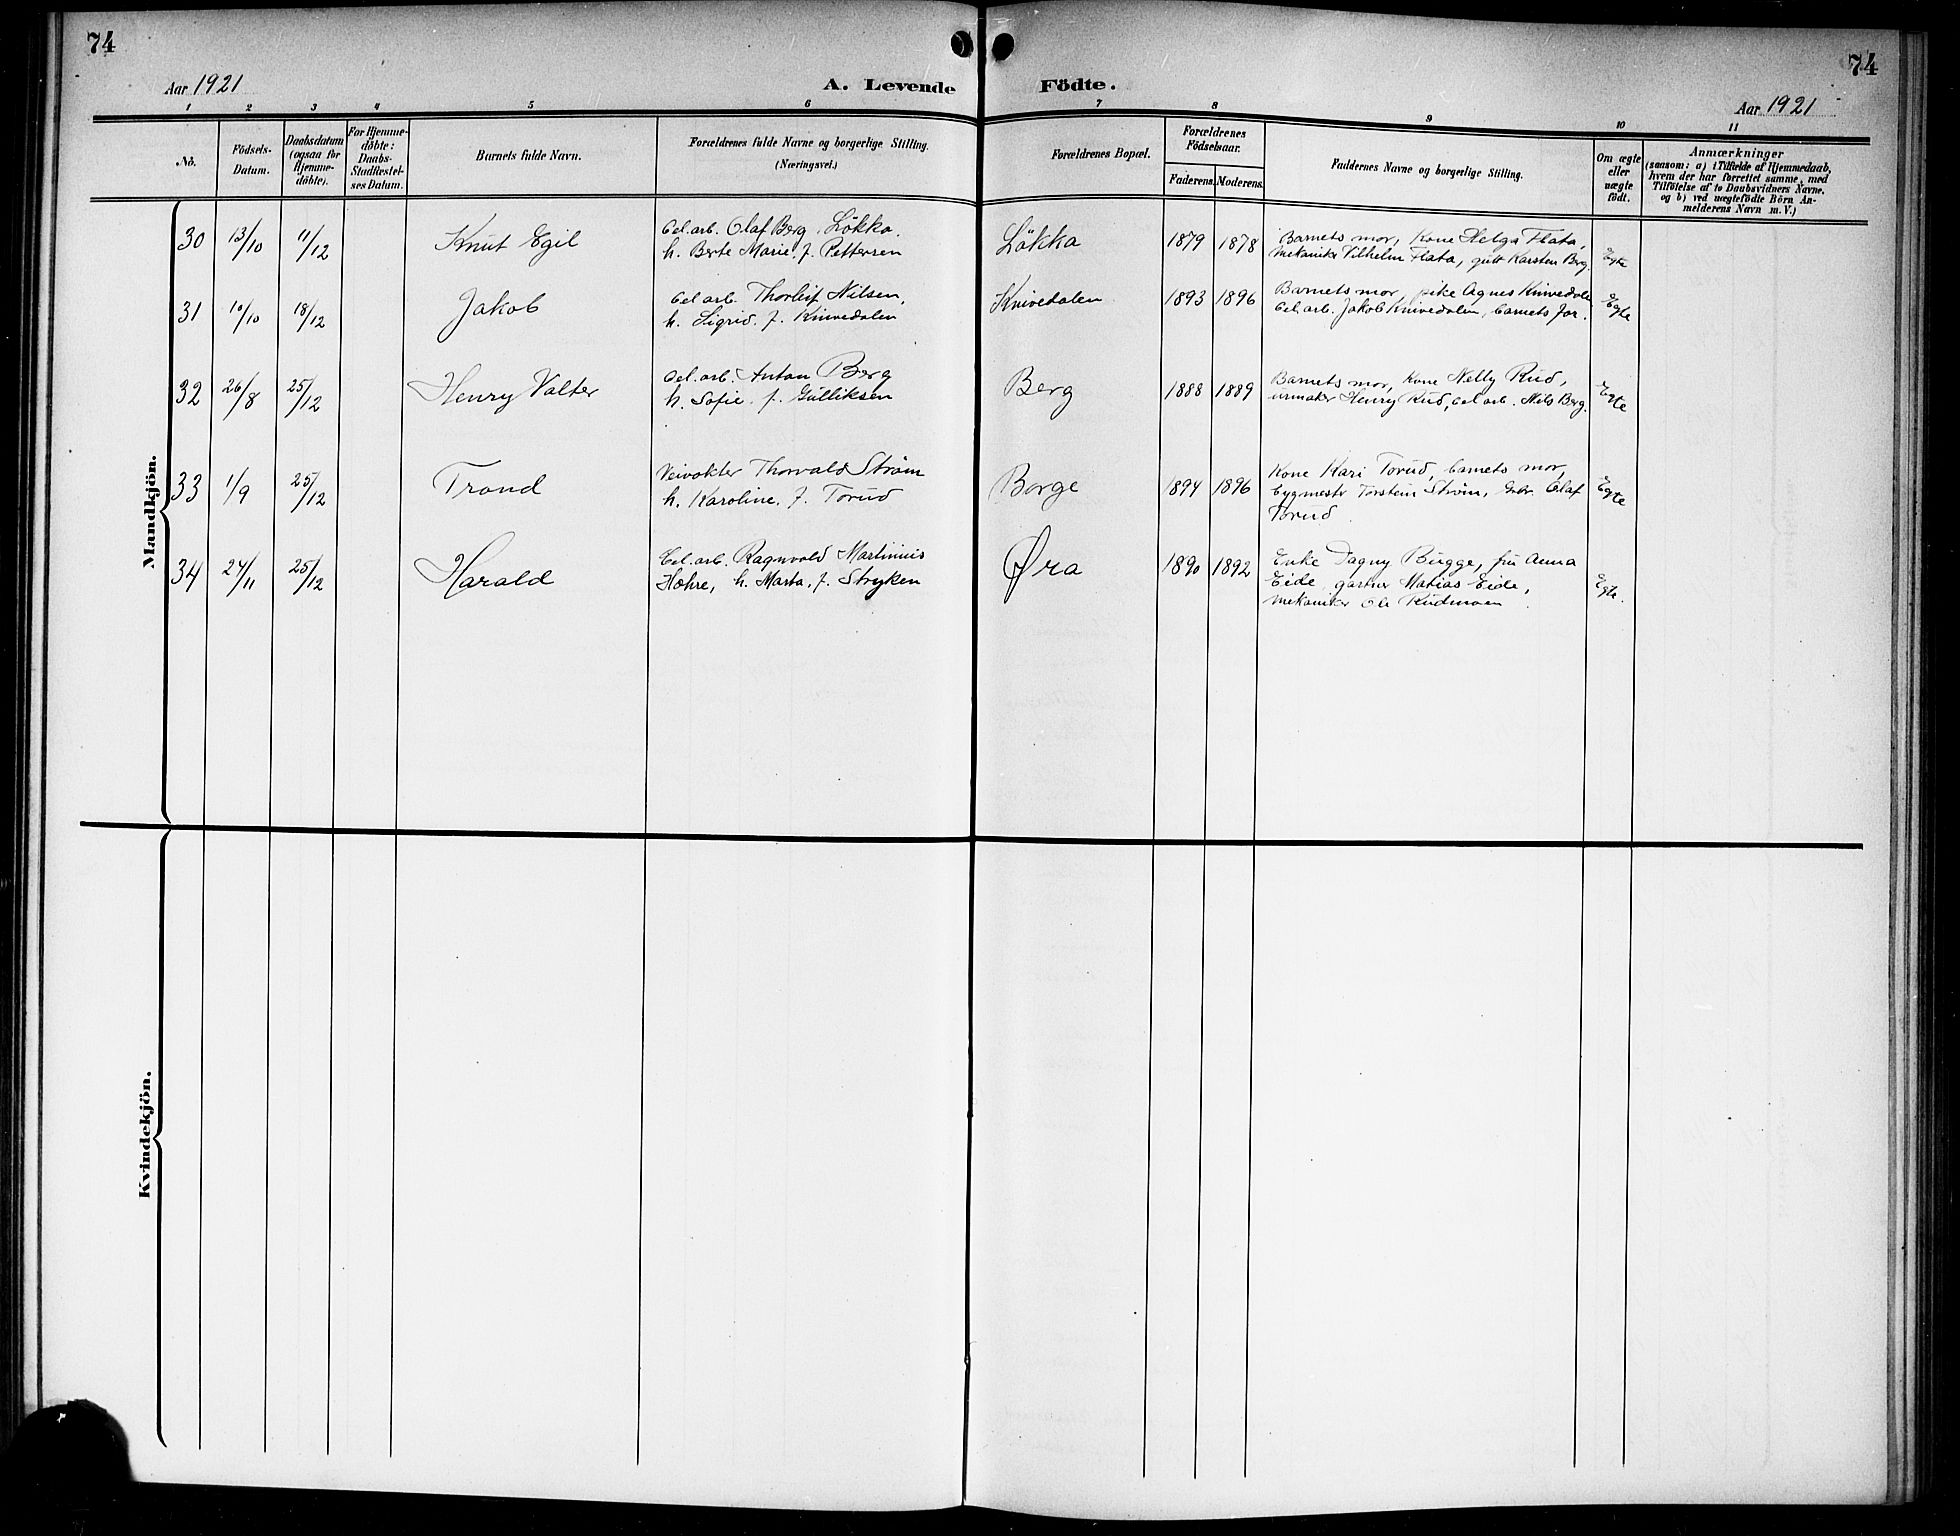 74
74
Aar 1921
A. Levende Födte.
Aar 1921
1 2 3 4 5 6 7 8 9 10 11
No.
Födsels-
Datum.
Daabsdatum
(ogsaa for
Hjemme-
döbte).
For Hjemme-
döbte:
Daabs-
Stadfæstel-
ses Datum.
Barnets fulde Navn.
Forældrenes fulde Navne og borgerlige Stilling.
(Næringsvei.)
Forældrenes Bopæl.
Forældrenes
Födselsaar.
Faderens. Moderens.
Faddernes Navne og borgerlige Stilling.
Om ægte
eller
uægte
födt.
Anmærkninger
(saasom: a) i Tilfælde af Hjemmedaab,
hvem der har forrettet samme, med
Tilföielse af to Daabsvidners Navne.
og b) ved uægtefödte Börn An-
melderens Navn m. V.)
Mandkjön.
30 13/10 11/12 Knut Egil
Cel. arb. Olaf Berg, Lökka.
h. Berte Marie, f. Pettersen
Lökka 1879 1878
Barnets mor, Kone Helga Flata,
mekaniker Vilhelm Flata, gutt Karsten Berg.
Egte
31 10/10 18/12 Jakob
Cel. arb. Thorleif Nilsen,
h. Sigrid. f. Knivedalen
Knivedalen 1893 1896
Barnets mor, pike Agnes Knivedalen
Cel. arb. Jakob Knivedalen, barnets far.
Egte
32 26/8 25/12 Henry Valter
Cel. arb. Anton Berg
h. Sofie. f. Gulliksen
Berg 1888 1889
Barnets mor, Kone Nelly Rud,
urmaker Henry Rud, cel arb. Nils Berg.
Egte
33 1/9 25/12 Trond
Veivokter Thorvald Strøm
h. Karoline, f. Torud
Borge 1894 1896
Kone Kari Torud, barnets mor,
bygmestr Torstein Strøm, Gbr. Olaf
Torud
Egte
34 24/11 25/12 Harald
Cel. arb. Ragnvald Martinius
Hohre, h. Marta, f. Stryken
Øra 1890 1892
Enke Dagny Bugge, fru Anna
Eide, gartner Matias Eide,
mekaniker Ole Rudmoen
Egte.
Kvindekjön.